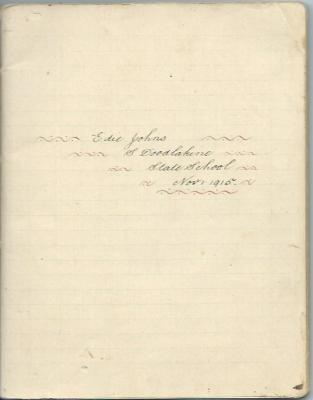 Edie Johns
S Doodlakine
State School
Nov 1915.